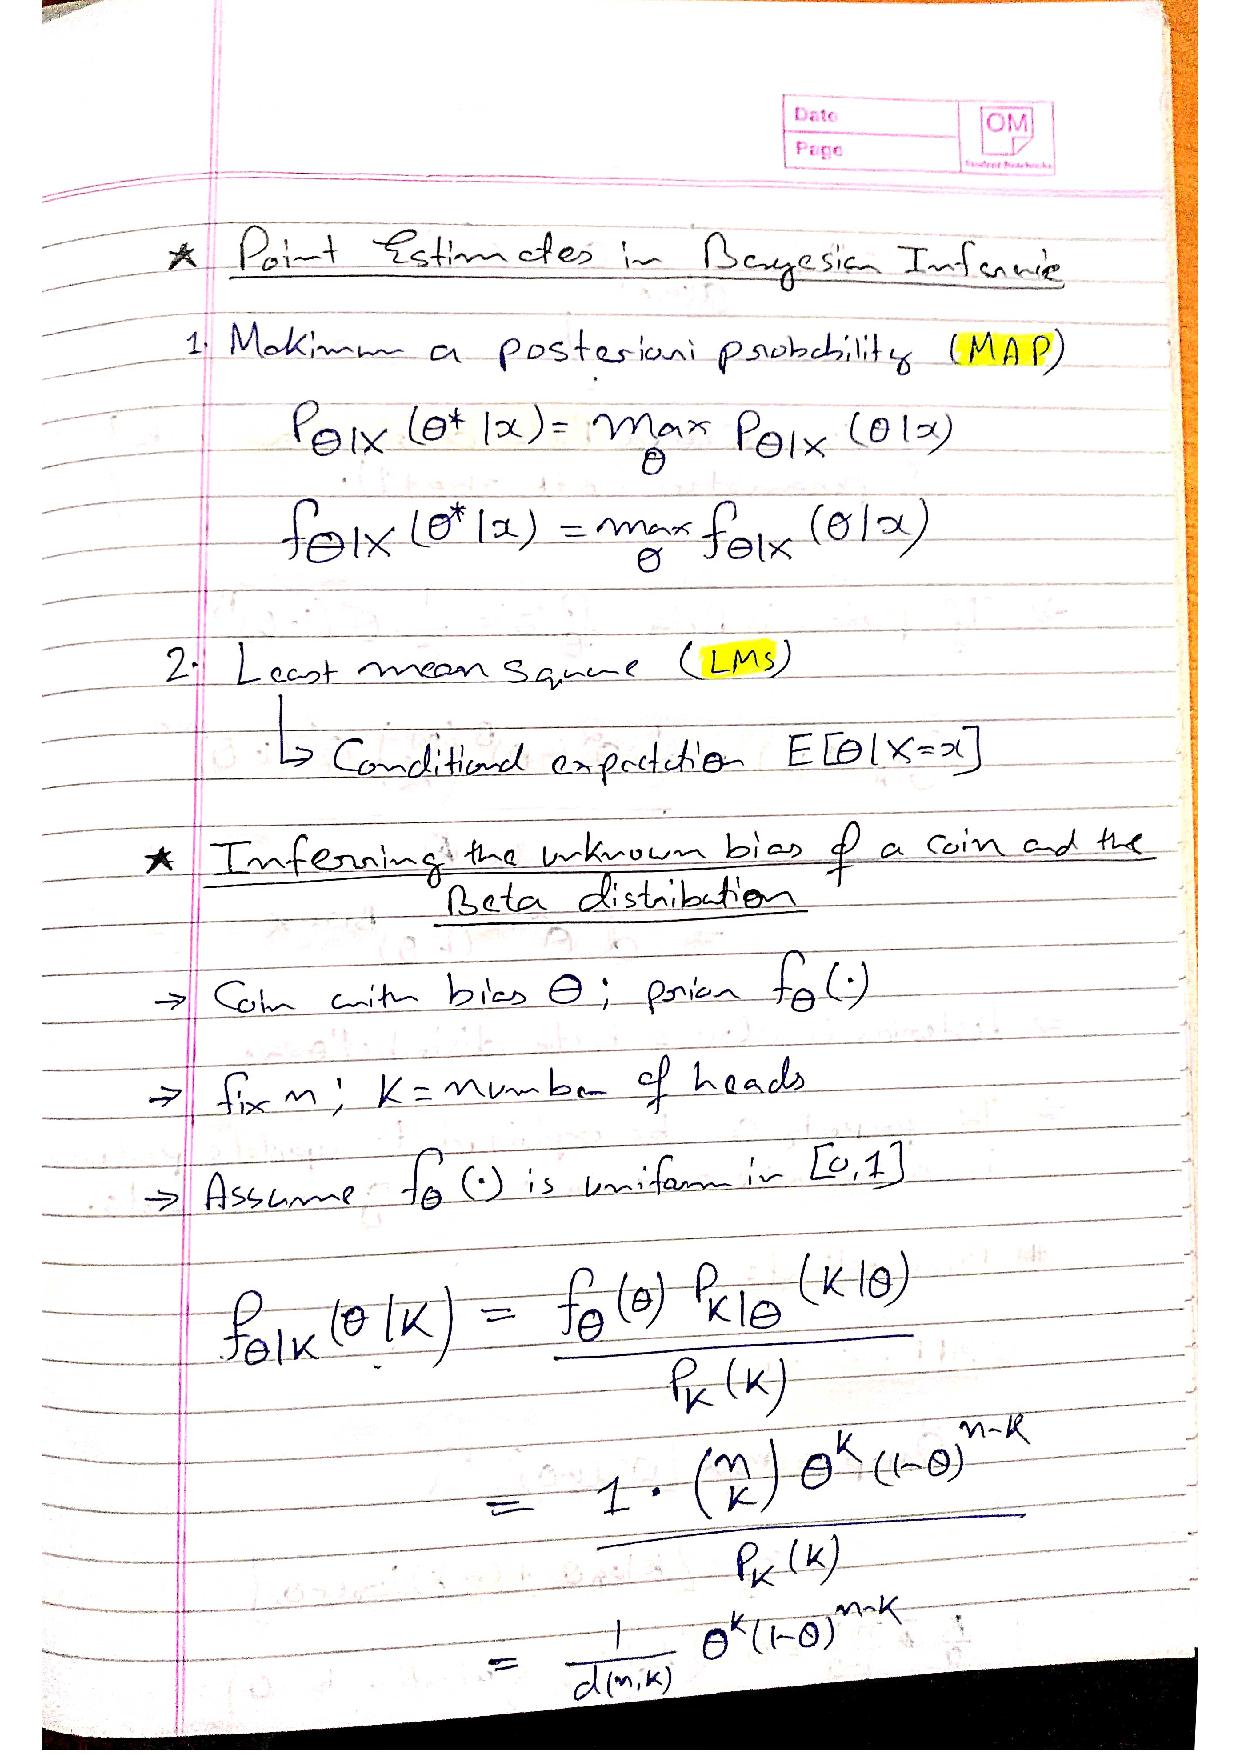 Date
Page
OM
★ Point Estimates in Bayesian Inference
1. Maximum a posteriori probability (MAP)
P_Θ|X (θ* | x) = max_θ P_Θ|X (θ | x)
f_Θ|X (θ* | x) = max_θ f_Θ|X (θ | x)
2. Least mean square (LMS)
↳ Conditional expectation E[Θ | X = x]
★ Inferring the unknown bias of a coin and the
Beta distribution
→ Coin with bias Θ; prior f_Θ(·)
→ fix n; K = number of heads
→ Assume f_Θ(·) is uniform in [0,1]
f_Θ|K (θ | K) = f_Θ(θ) P_K|Θ (K | θ)
P_K(K)
= 1 · (n K) θ^k (1-θ)^n-k
P_K(K)
= 1/d(n,K) θ^k (1-θ)^n-k